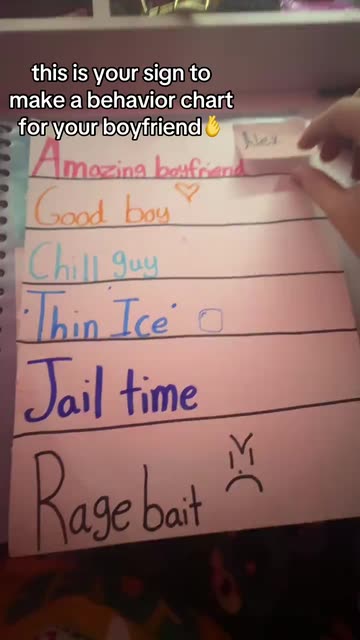 this is your sign to
make a behavior chart
for your boyfriend🫰
Alex
Amazing boyfriend
Good boy
Chill guy
'Thin Ice'
Jail time
Rage bait